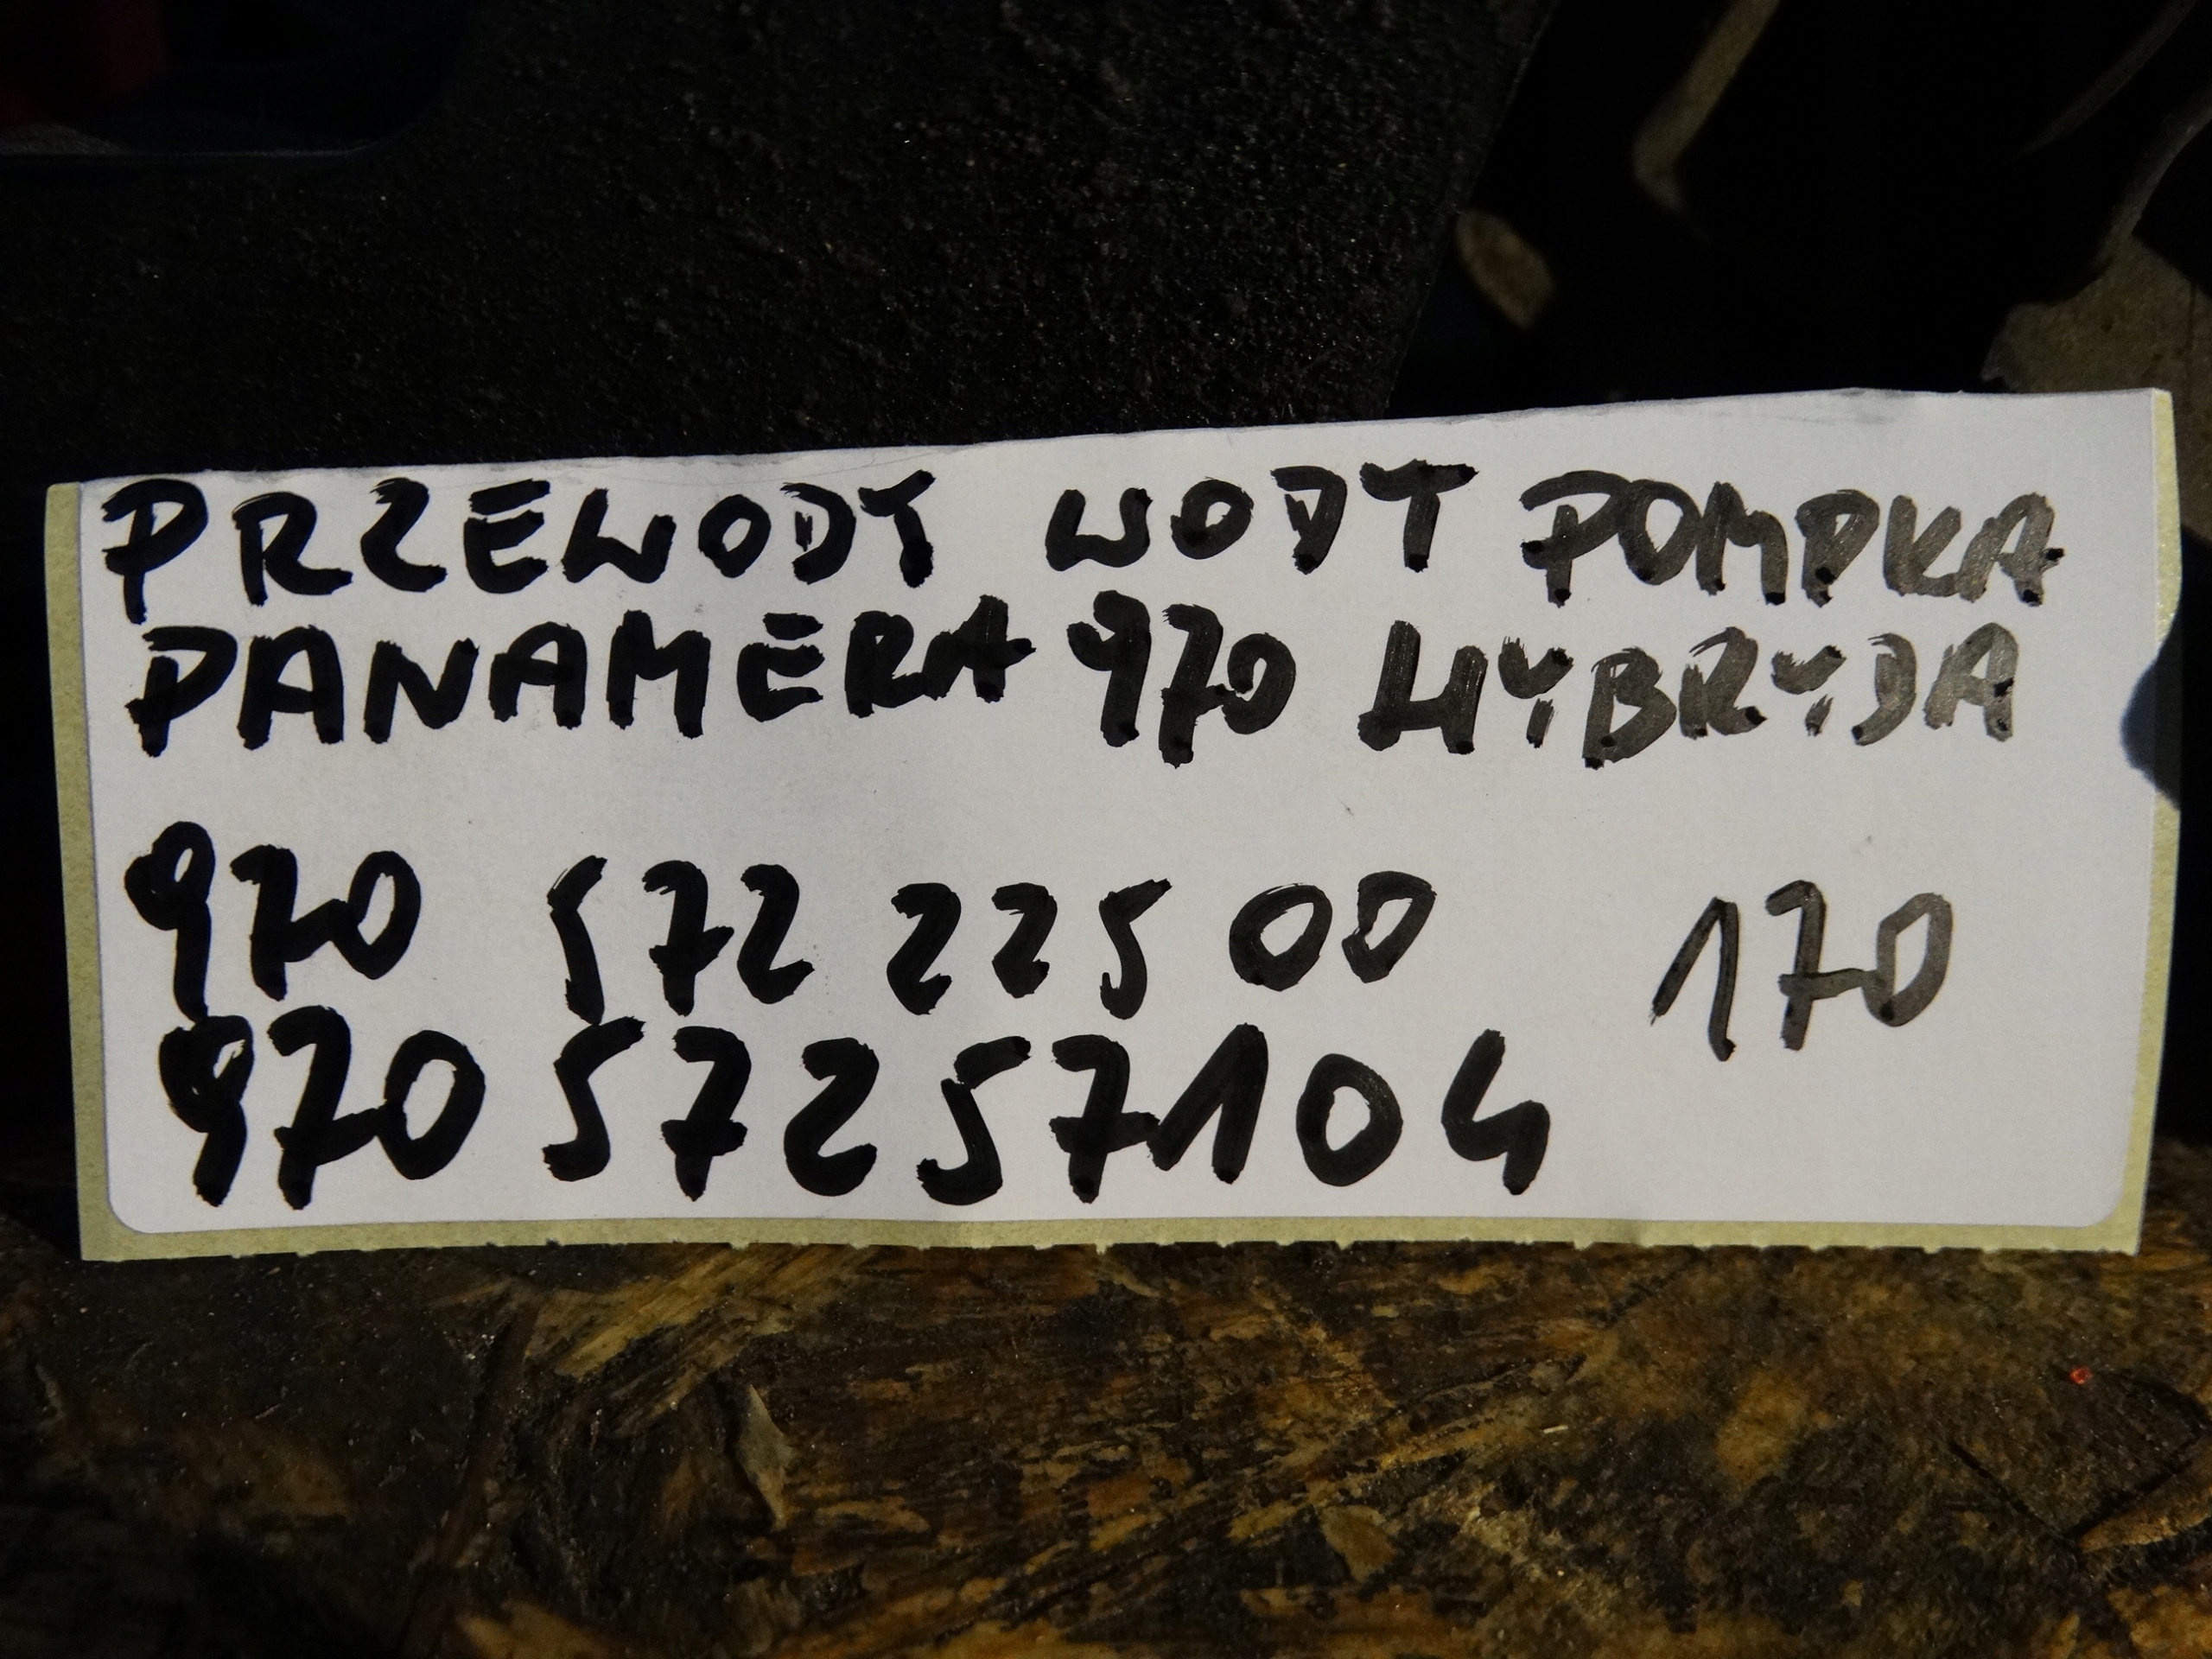 PRZEWODY WODY POMPKA
PANAMERA 970 HYBRYDA
970 572 225 00 170
970 572 57104